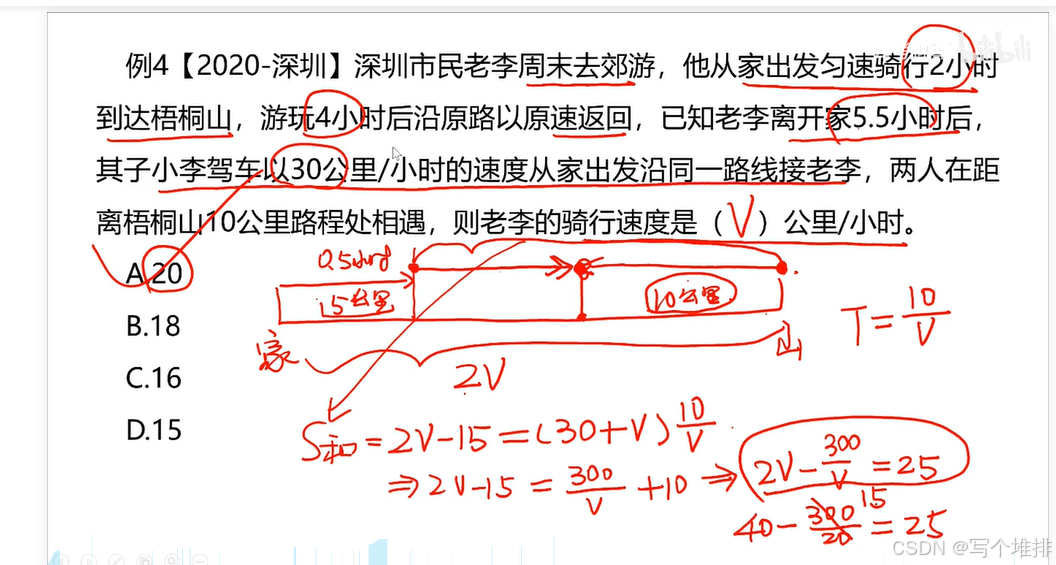 例4【2020-深圳】深圳市民老李周末去郊游，他从家出发匀速骑行2小时
到达梧桐山，游玩4小时后沿原路以原速返回，已知老李离开家5.5小时后，
其子小李驾车以30公里/小时的速度从家出发沿同一路线接老李，两人在距
离梧桐山10公里路程处相遇，则老李的骑行速度是（V）公里/小时。
A.20
B.18
C.16
D.15
0.5小时
15公里
10公里
家
山
2V
T=10/V
S和=2V-15=(30+V)10/V
⇒2V-15=300/V+10⇒2V-300/V=25
15
40-300/20=25
CSDN @写个堆排